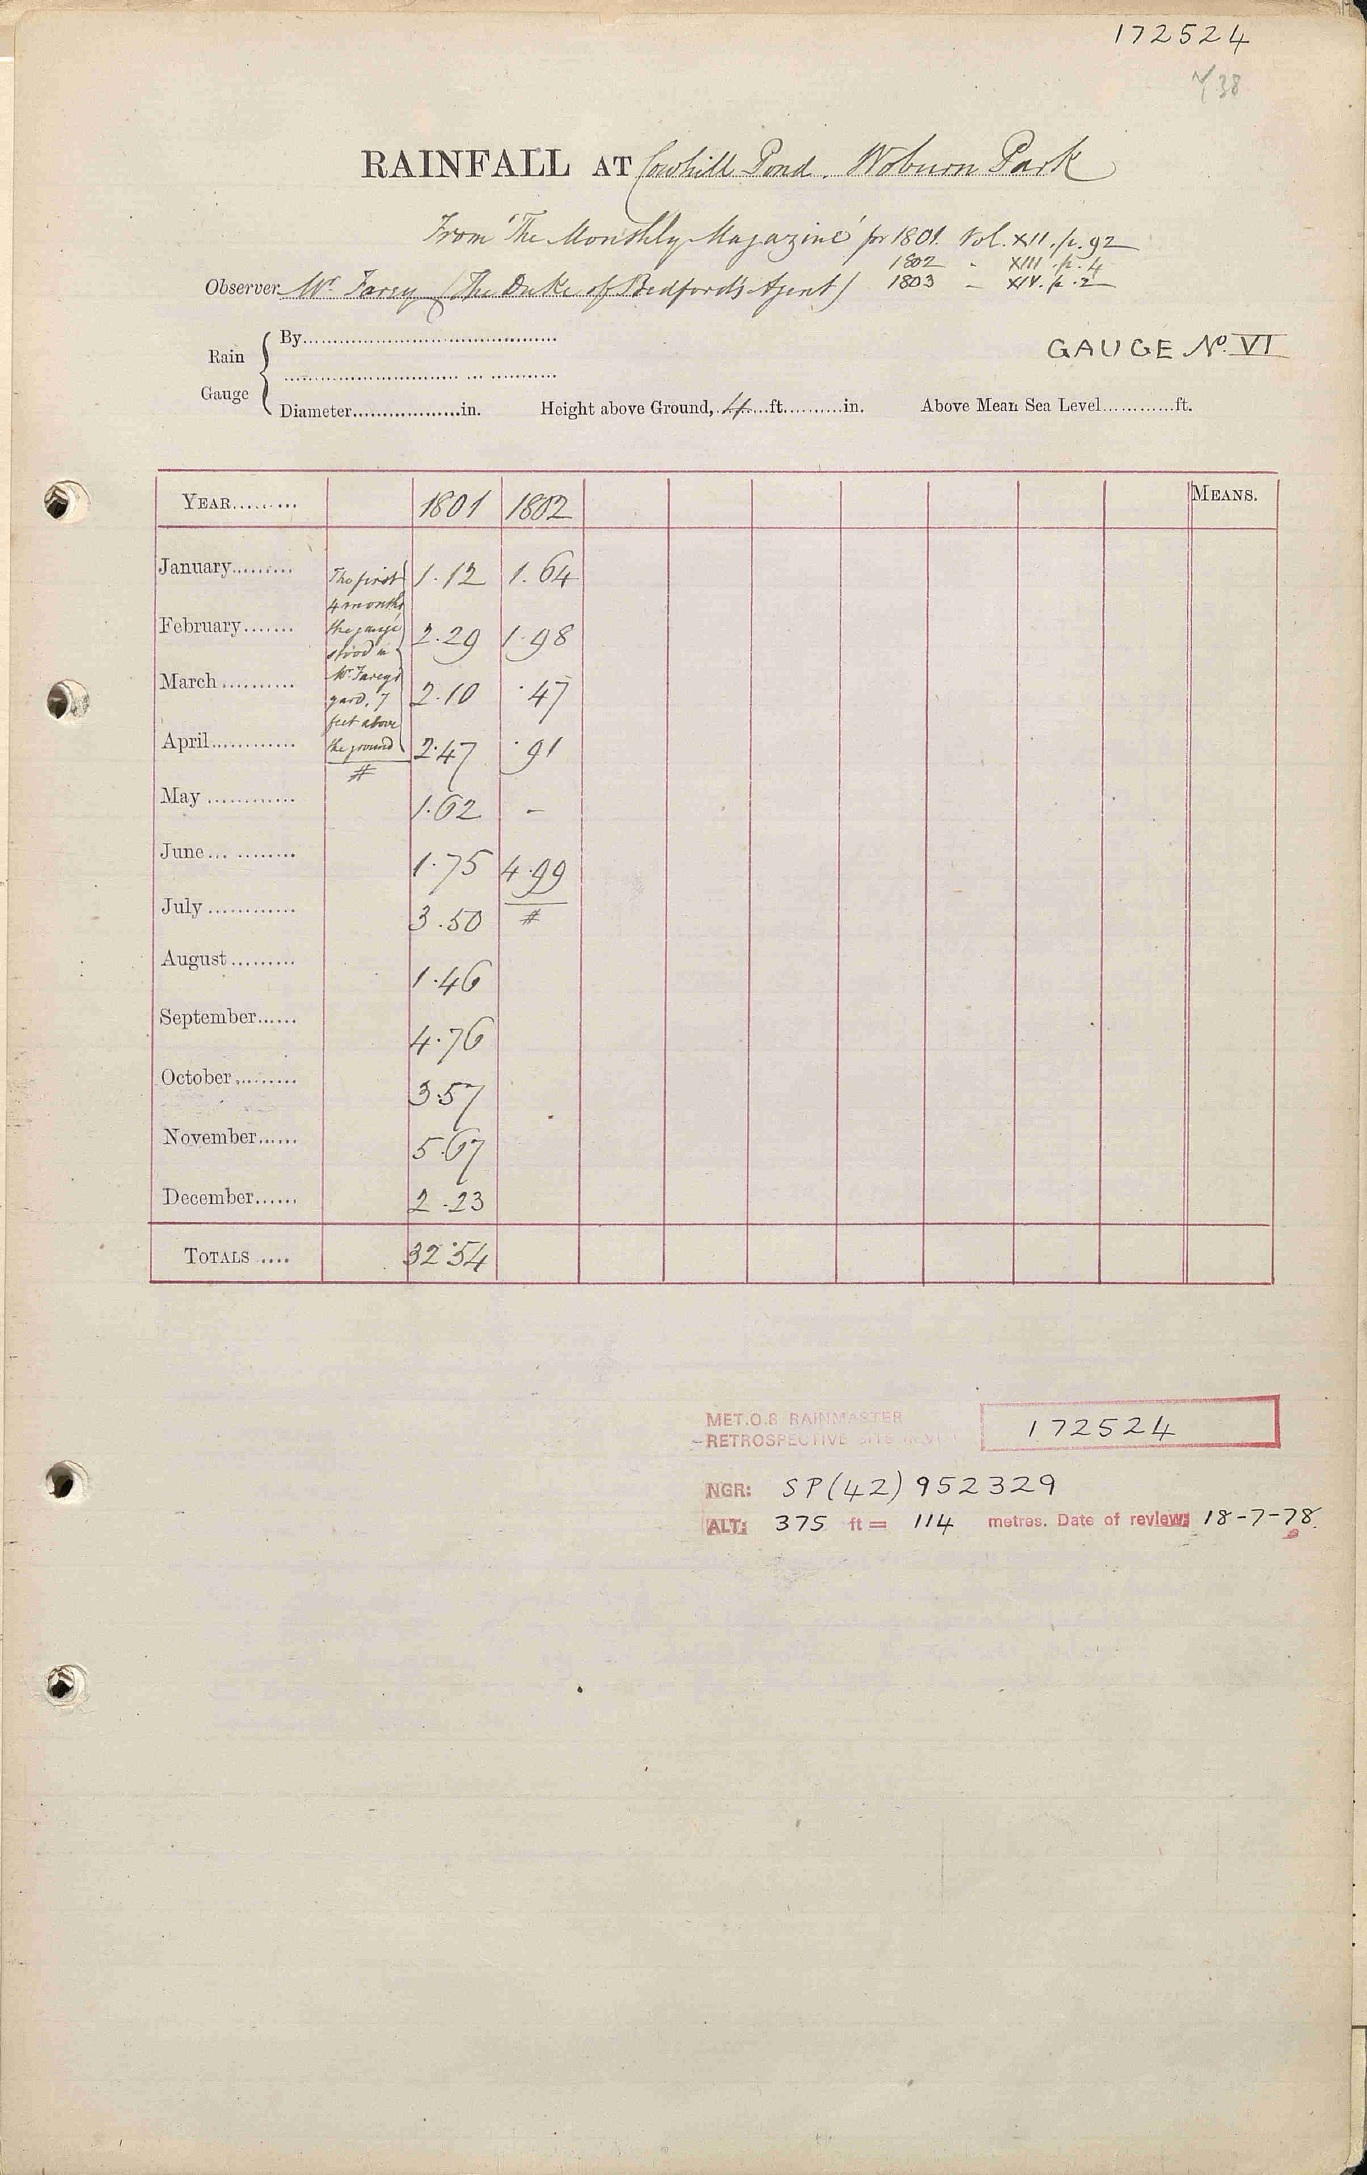 172524
RAINFALL AT Cowhill Pond. Woburn Park
From 'The Monthly Magazine' for 1801. Vol. XII. p. 92
1802 - XIII. p. 4
Observer Mr Farey (The Duke of Bedford's Agent) 1803 - XIV. p. 2
Rain Gauge
By
GAUGE No. VI
Diameter in. Height above Ground, 4 ft. in. Above Mean Sea Level ft.
YEAR 1801 1802 MEANS.
The first
4 months
the gauge
stood in
Mr Farey's
yard, 7
feet above
the ground
#
January 1.12 1.64
February 2.29 1.98
March 2.10 .47
April 2.47 .91
May 1.62 -
June 1.75 4.99
July 3.50 #
August 1.46
September 4.76
October 3.57
November 5.67
December 2.23
TOTALS 32.54
MET.O.8 RAINMASTER
RETROSPECTIVE 172524
NGR: SP(42)952329
ALT: 375 ft = 114 metres. Date of review: 18-7-78.